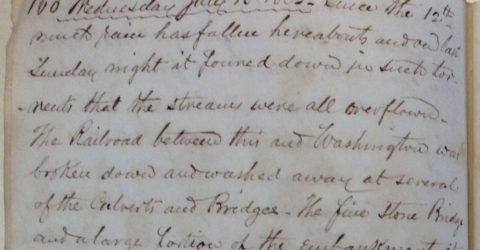 160 Wednesday June 18 Since the 12th
much rain has fallen hereabouts and on last
Sunday night it poured down in such tor-
-rents that the streams were all overflown -
The Railroad between this and Washington was
broken down and washed away at several
of the Culverts and Bridges - The fine Stone Bridge
and a large Portion of the Embankment